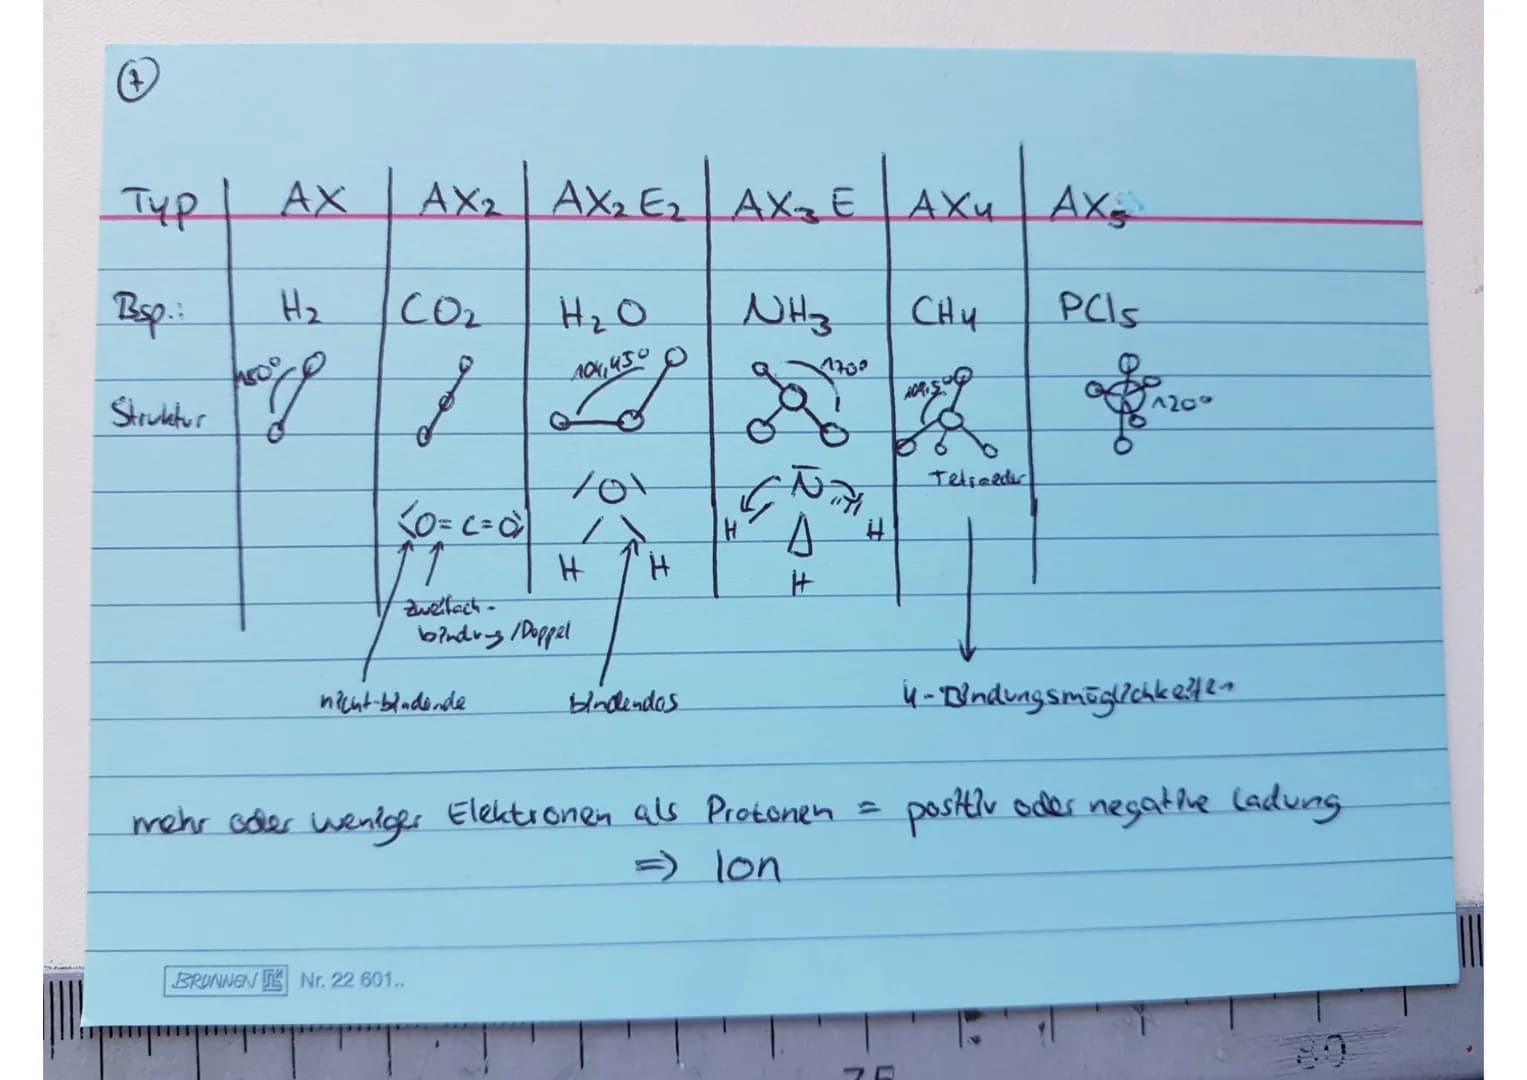 7
Typ AX AX2 AX2 E2 AX3 E AX4 AX5
Bsp.: H2 CO2 H2O NH3 CH4 PCl5
Struktur 180° 104,45° 120° 109,5° 120°
Tetraeder
⟨O=C=O⟩ /O\ N̄
H H H H H
Zweifach-
bindung/Doppel
nicht-bindende bindendes 4-Bindungsmöglichkeiten
mehr oder weniger Elektronen als Protonen = positiv oder negative Ladung
=> Ion
BRUNNEN Nr. 22 601..
75 80